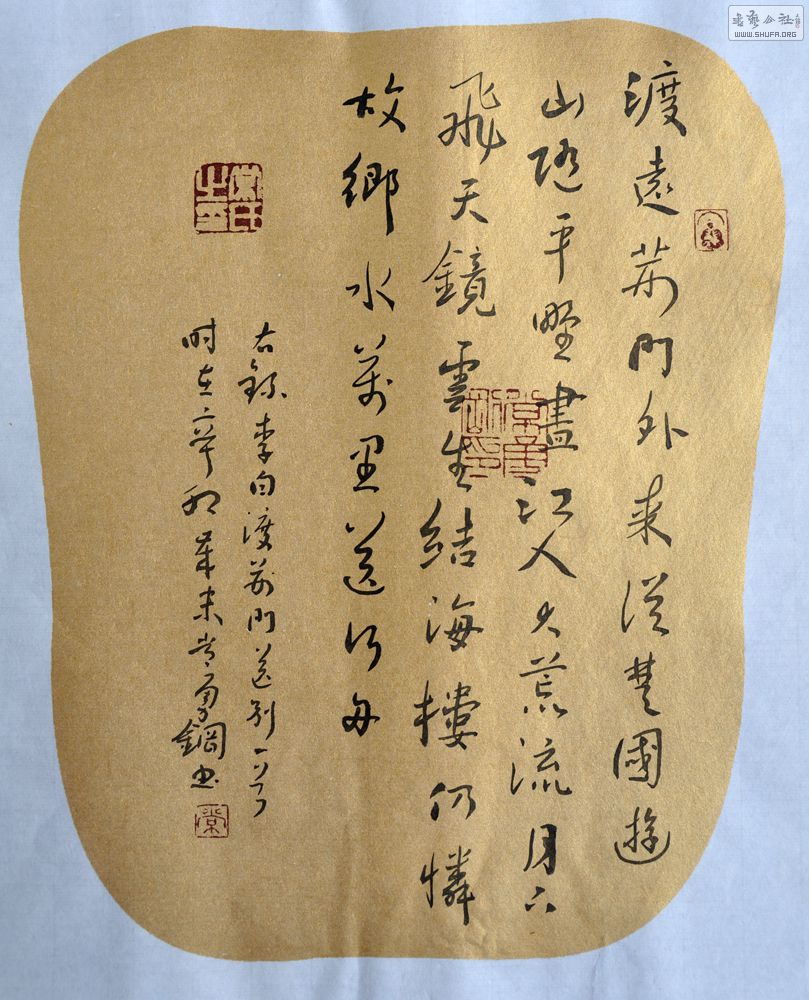 書藝公社
WWW.SHUFA.ORG
渡遠荆門外来從楚國遊
山随平野盡江入大荒流月下
飛天鏡雲生結海樓仍憐
故鄉水萬里送行舟
右録李白渡荆門送别一首
時在辛卯歲末常勇鋼书
常